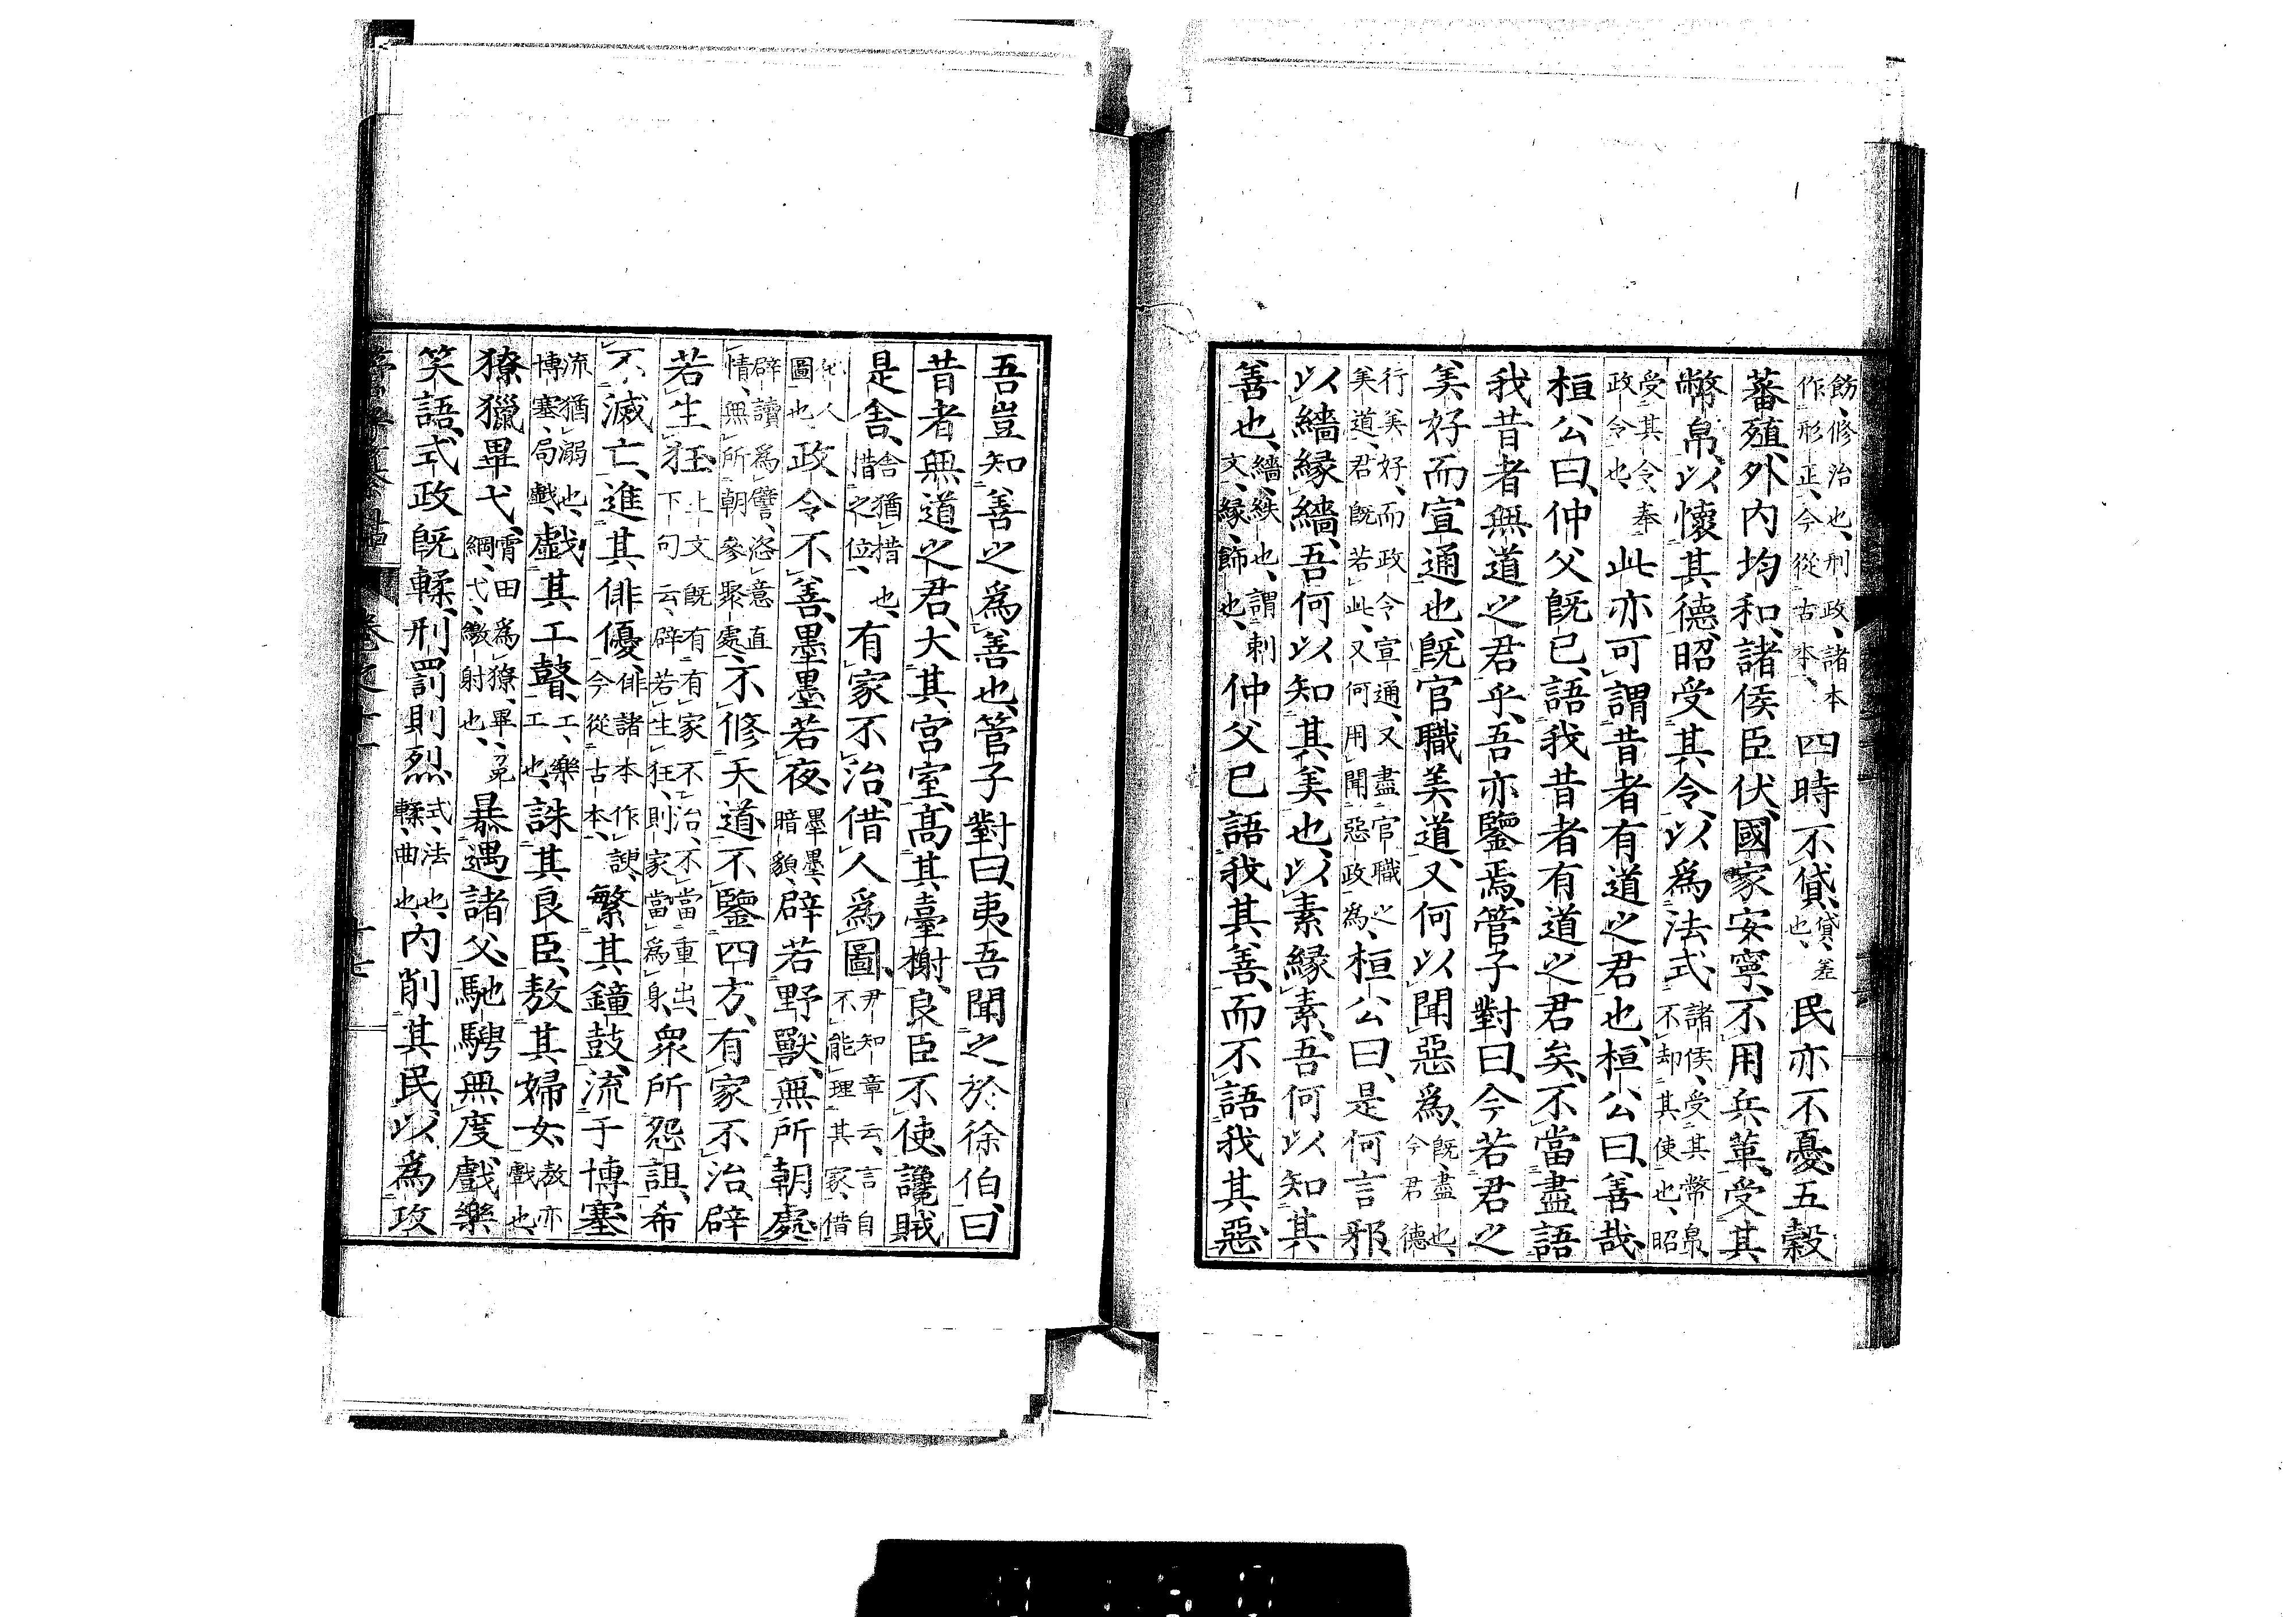 飭、修治也、刑政、諸本作形正、今從古本、四時不貸、貸、差也、民亦不憂、五穀
蕃殖、外内均和、諸侯臣伏、國家安寧、不用兵革、受其
幣帛、以懷其德、昭受其令、以爲法式、諸侯、受其幣帛、不却其使也、昭
受其令、奉政令也、此亦可謂昔者有道之君也、桓公曰、善哉、
桓公曰、仲父既已、語我昔者有道之君矣、不當盡語
我昔者無道之君乎、吾亦鑒焉、管子對曰、今若君之
美好而宣通也、既官職美道、又何以聞惡爲、既、盡也、今君德
行美好、而政令宣通、又盡官職之美道、君既若此、又何用聞惡政爲、桓公曰、是何言邪、
以繬縁繬、吾何以知其美也、以素縁素、吾何以知其
善也、繬、紩也、謂刺文、縁、飾也、仲父已語我其善、而不語我其惡、
吾豈知善之爲善也、管子對曰、夷吾聞之於徐伯、曰
昔者無道之君、大其宮室、高其臺榭、良臣不使、讒賊
是舎、舎猶措也、措之位、有家不治、借人爲圖、尹知章云、言自不能理其家、借
他人圖也、政令不善、墨墨若夜、墨墨、暗貌、辟若野獸、無所朝處、
辟讀爲譬、洛意直情、無所朝參聚處、不修天道、不鑒四方、有家不治、辟
若生狂、上文既有有家不治、不當重出、下句云、辟若生狂、則家當爲身、衆所怨詛、希
不滅亡、進其俳優、俳諸本作諛、今從古本、繁其鐘鼓、流于博塞
流猶溺也、博塞、局戲、戲其工瞽、工、樂工也、誅其良臣、敖其婦女、敖亦戲也、
獠獵畢弋、宵田爲獠、畢、兔網、弋、繳射也、暴遇諸父、馳騁無度、戲樂
笑語、式政既輮、刑罰則烈、式、法也、輮、曲也、内削其民、以爲攻